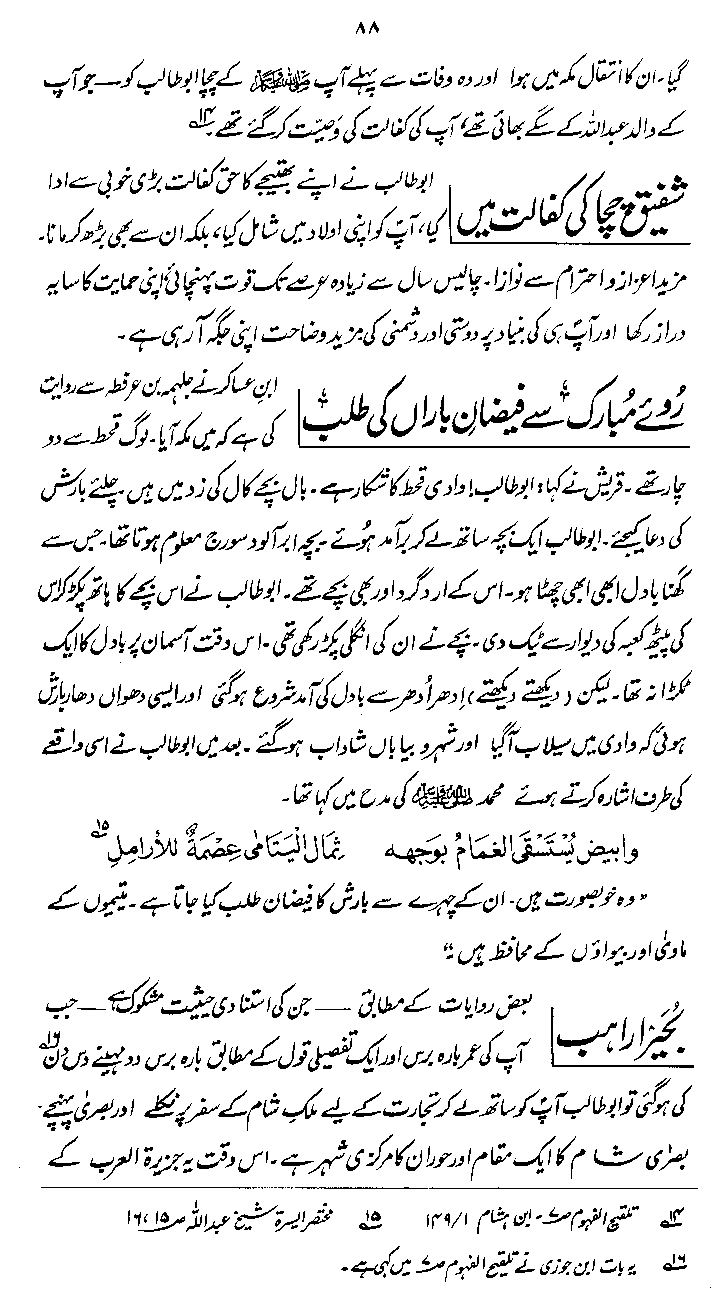 ۸۸
گیا۔ ان کا انتقال مکہ میں ہوا اور وہ وفات سے پہلے آپ ﷺ کے چچا ابوطالب کو — جو آپ
کے والد عبداللہ کے سگے بھائی تھے، آپ کی کفالت کی وصیّت کر گئے تھے۔ ۱۴
شفیق چچا کی کفالت میں
ابوطالب نے اپنے بھتیجے کا حق کفالت بڑی خوبی سے ادا
کیا، آپؐ کو اپنی اولاد میں شامل کیا، بلکہ ان سے بھی بڑھ کر مانا۔
مزید اعزاز و احترام سے نوازا۔ چالیس سال سے زیادہ عرصے تک قوت پہنچائی، اپنی حمایت کا سایہ
دراز رکھا اور آپؐ ہی کی بنیاد پر دوستی اور دشمنی کی مزید وضاحت اپنی جگہ آ رہی ہے۔
رُوئے مُبارک سے فیضانِ باراں کی طلب
ابنِ عساکر نے جلہمہ بن عرفطہ سے روایت
کی ہے کہ میں مکہ آیا۔ لوگ قحط سے دو
چار تھے۔ قریش نے کہا: ابوطالب! وادی قحط کا شکار ہے۔ بال بچے کال کی زد میں ہیں۔ چلئے بارش
کی دعا کیجئے۔ ابوطالب ایک بچہ ساتھ لے کر برآمد ہُوئے۔ بچہ ابر آلود سورج معلوم ہوتا تھا۔ جس سے
گھنا بادل ابھی ابھی چھٹا ہو۔ اس کے ارد گرد اور بھی بچے تھے۔ ابوطالب نے اس بچے کا ہاتھ پکڑ کر اس
کی پیٹھ کعبہ کی دیوار سے ٹیک دی۔ بچے نے ان کی انگلی پکڑ رکھی تھی۔ اس وقت آسمان پر بادل کا ایک
ٹکڑا نہ تھا۔ لیکن (دیکھتے دیکھتے) اِدھر اُدھر سے بادل کی آمد شروع ہوگئی اور ایسی دھواں دھار بارش
ہوئی کہ وادی میں سیلاب آگیا اور شہر و بیاباں شاداب ہوگئے۔ بعد میں ابوطالب نے اسی واقعے
کی طرف اشارہ کرتے ہوئے محمد ﷺ کی مدح میں کہا تھا۔
وابيض يُستسقى الغمامُ بوجهه ثِمال اليتامىٰ عِصمةٌ للأراملِ ۱۵
"وہ خوبصورت ہیں۔ ان کے چہرے سے بارش کا فیضان طلب کیا جاتا ہے۔ یتیموں کے
ماویٰ اور بیواؤں کے محافظ ہیں"
بُحَیرا راہب
بعض روایات کے مطابق — جن کی استنادی حیثیت مشکوک ہے — جب
آپ کی عمر بارہ برس اور ایک تفصیلی قول کے مطابق بارہ برس دو مہینے دس دن ۱۶
کی ہوگئی تو ابوطالب آپؐ کو ساتھ لے کر تجارت کے لیے ملکِ شام کے سفر پر نکلے اور بصریٰ پہنچے۔
بصریٰ شام کا ایک مقام اور حوران کا مرکزی شہر ہے۔ اس وقت یہ جزیرۃ العرب کے
۱۴ تلقیح الفہوم ص۷۔ ابن ہشام ۱/۱۴۹ ۱۵ مختصر السیرۃ شیخ عبداللہ ص۱۵، ۱۶
۱۶ یہ بات ابن جوزی نے تلقیح الفہوم ص۷ میں کہی ہے۔